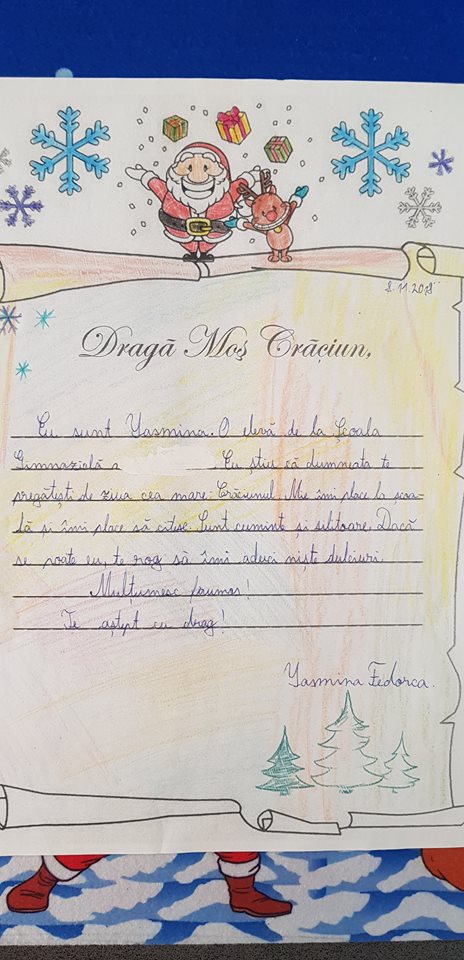 8.11.2018
Dragă Moș Crăciun,
Eu sunt Yasmina. O elevă de la Școala
Gimnazială a . Eu știu că dumneata te
pregătești de ziua cea mare: Crăciunul. Mie îmi place la școa-
lă și îmi place să citesc. Sunt cuminte și silitoare. Dacă
se poate eu, te rog să îmi aduci niște dulciuri.
Mulțumesc frumos!
Te aștept cu drag!
Yasmina Fedorca.